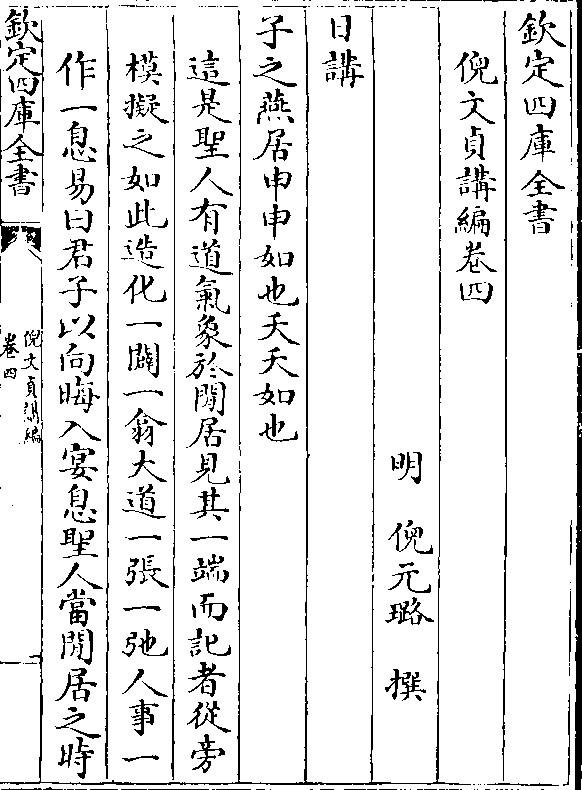 欽定四庫全書
倪文貞講編卷四
明　倪元璐　撰
日講
子之燕居申申如也夭夭如也
這是聖人有道氣象於閒居見其一端而記者從旁
模擬之如此造化一闢一翕大道一張一弛人事一
作一息易曰君子以向晦入宴息聖人當閒居之時
欽定四庫全書
倪文貞講編
卷四